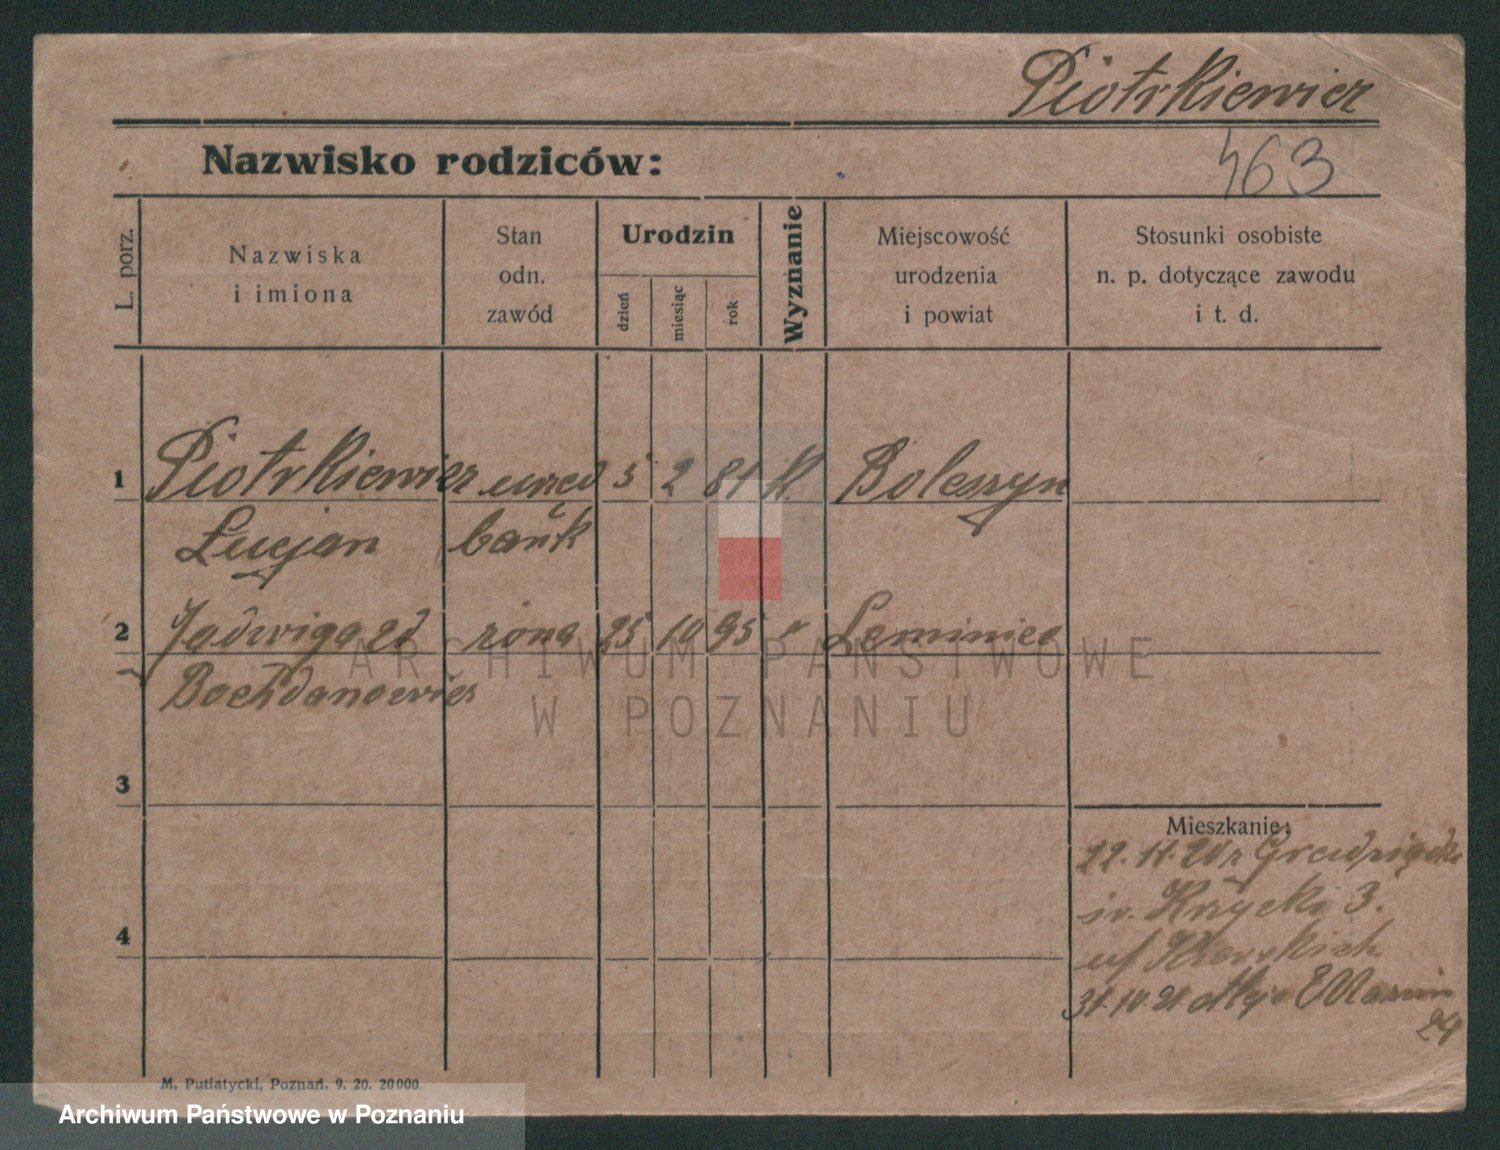 Piotrkiewicz
463
Nazwisko rodziców:
L. porz.
Nazwiska
i imiona
Stan
odn.
zawód
Urodzin
dzień
miesiąc
rok
Wyznanie
Miejscowość
urodzenia
i powiat
Stosunki osobiste
n. p. dotyczące zawodu
i t. d.
1 Piotrkiewicz urzęd 5 2 81 k. Boleszyn
Lucjan bank
2 Jadwiga zd żona 25 10 95 "
Bochdanowicz
3
Mieszkanie:
22.11.20 z Grudziądza
3.
4
31.10.21 Marcin
24
M. Putiatycki, Poznań. 9. 20. 20000.
ARCHIWUM PAŃSTWOWE
W POZNANIU
Archiwum Państwowe w Poznaniu